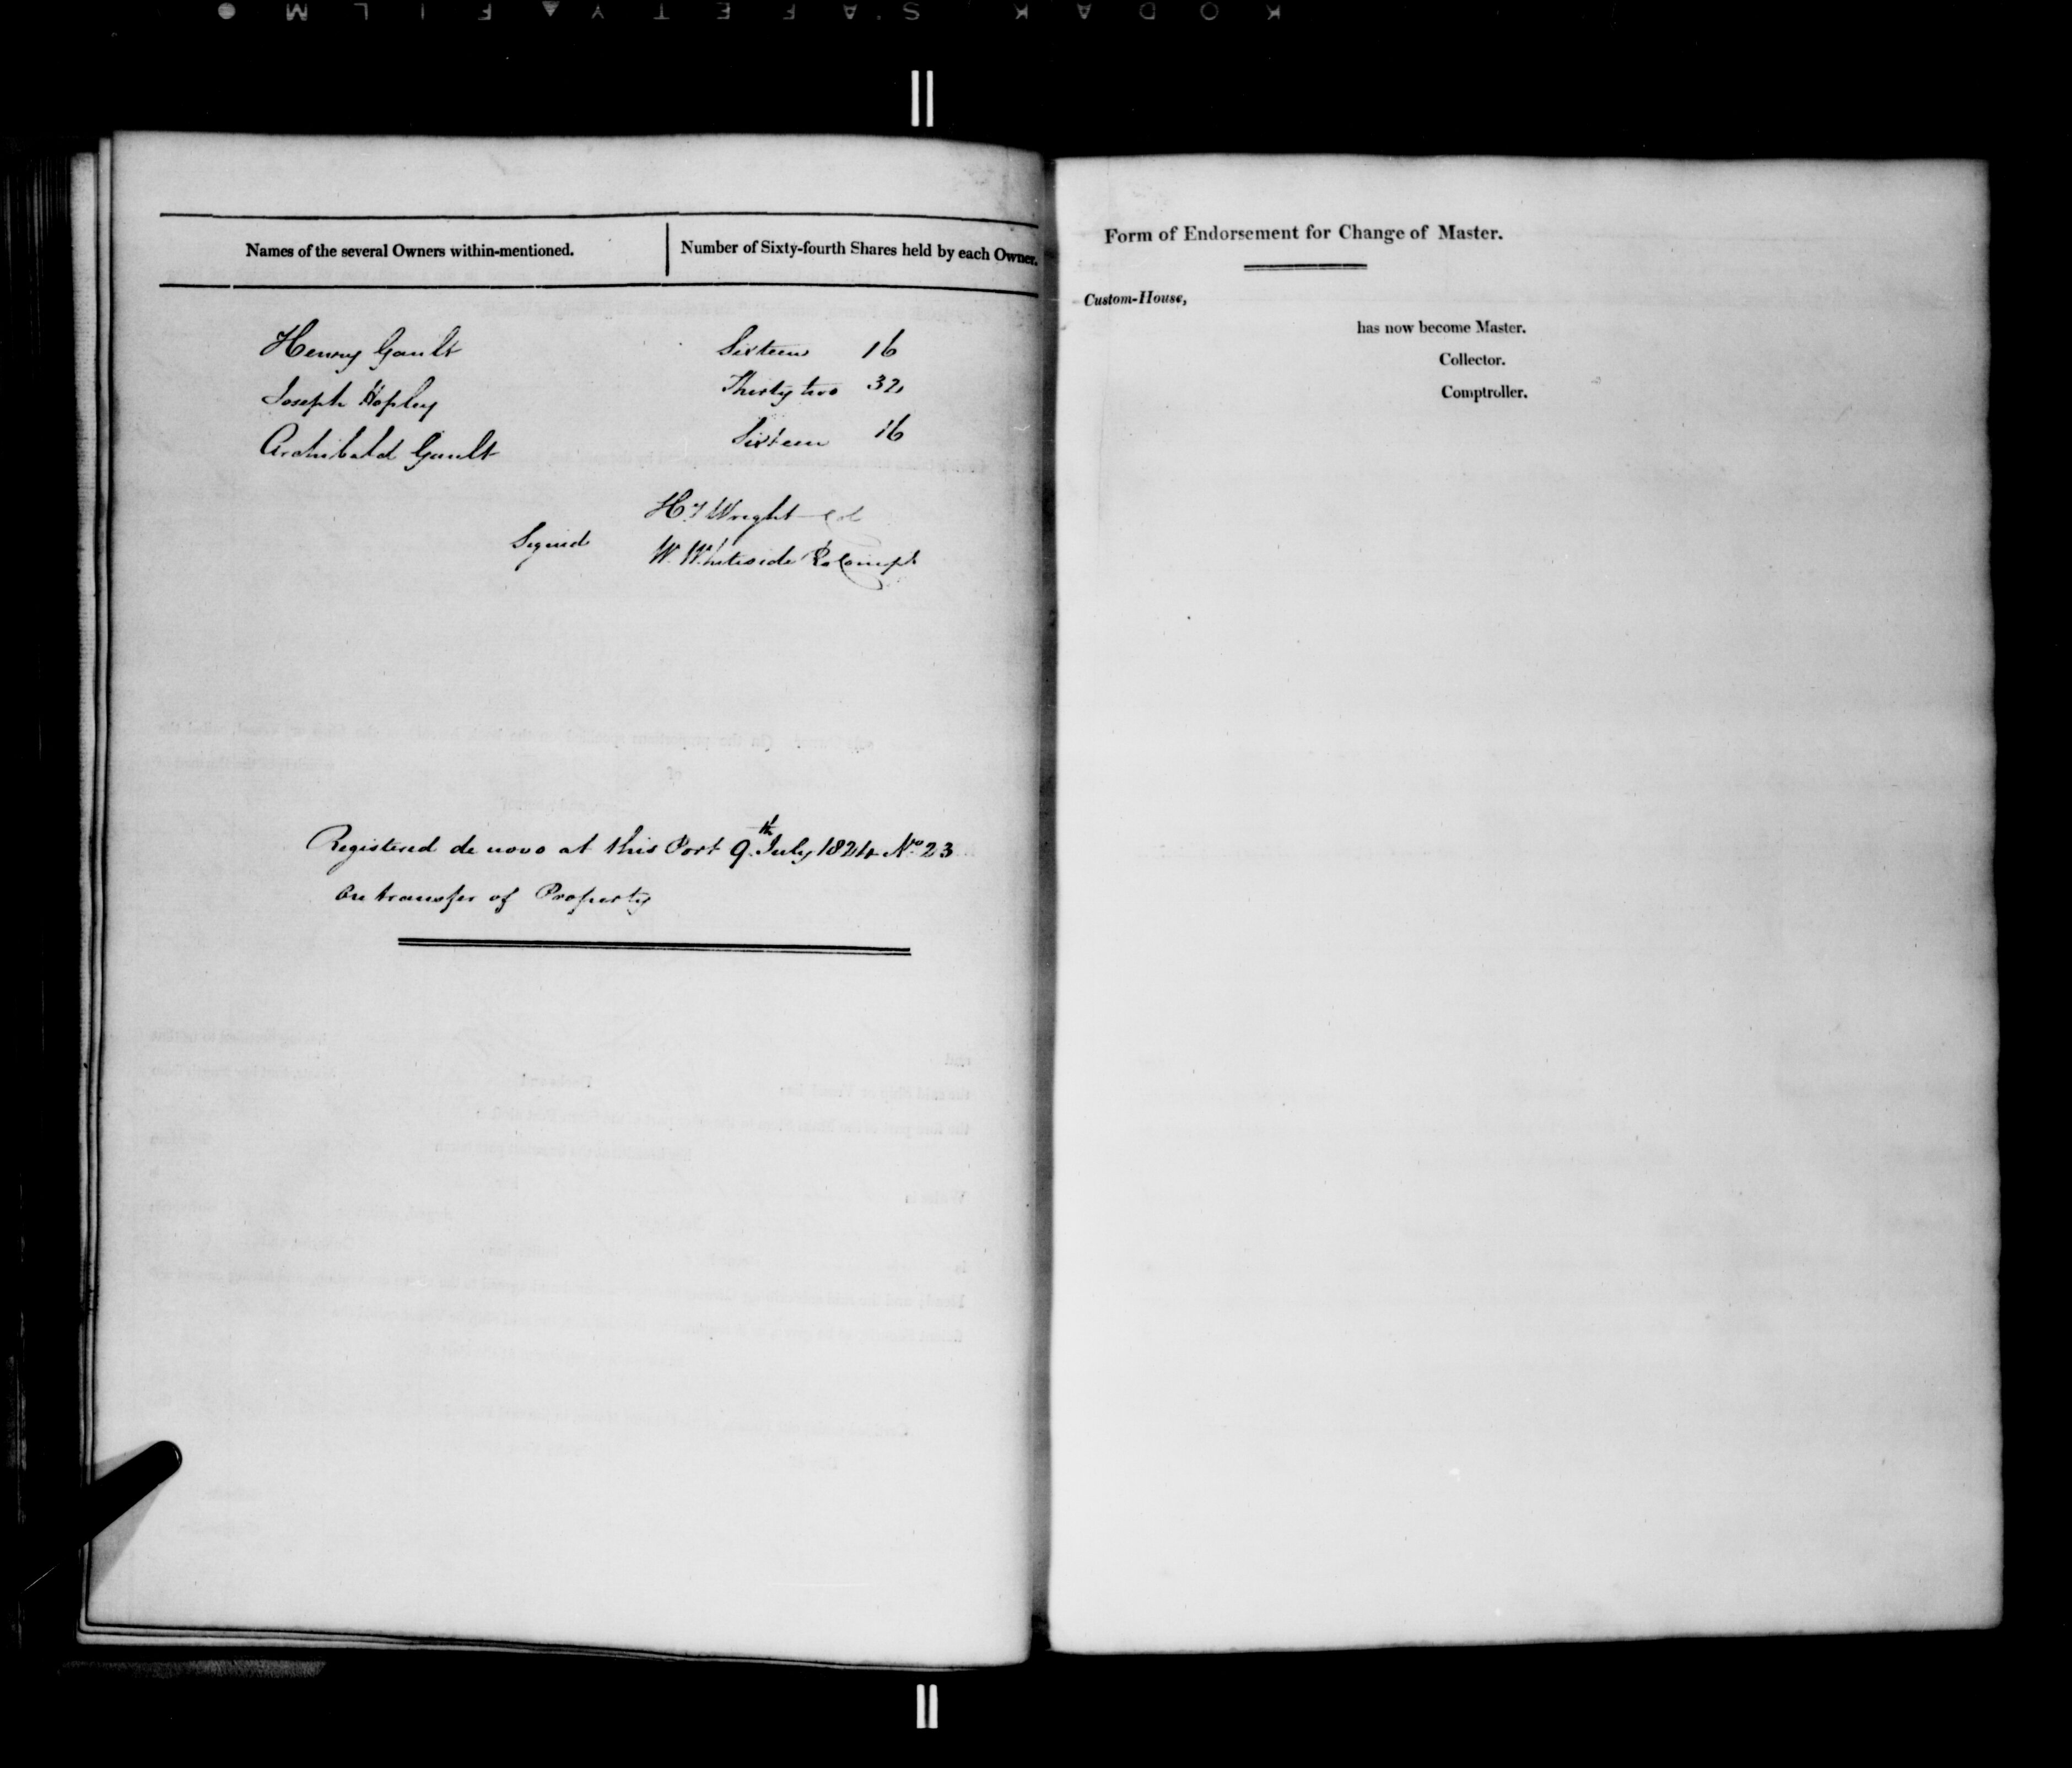 KODAK SAFETY FILM
Names of the several Owners within-mentioned. Number of Sixty-fourth Shares held by each Owner.
Henry Gault Sixteen 16
Joseph Hopley Thirty two 32
Archibald Gault Sixteen 16
Hy Wright Col
Signed
W. Whiteside Compt
Registered de novo at this Port 9th July 1824 No 23
On transfer of Property
Form of Endorsement for Change of Master.
Custom-House,
has now become Master.
Collector.
Comptroller.